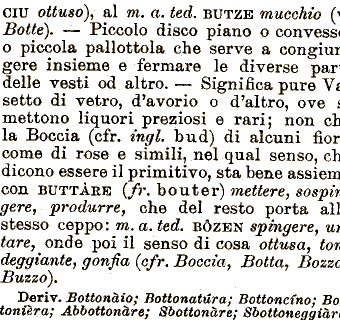 CIU ottuso), al m. a. ted. BUTZE mucchio (v
Botte). — Piccolo disco piano o convesso
o piccola pallottola che serve a congiun
gere insieme e fermare le diverse par
delle vesti od altro. — Significa pure Va
setto di vetro, d'avorio o d'altro, ove s
mettono liquori preziosi e rari; non ch
la Boccia (cfr. ingl. bud) di alcuni fior
come di rose e simili, nel qual senso, ch
dicono essere il primitivo, sta bene assiem
con BUTTÀRE (fr. bouter) mettere, sospin
gere, produrre, che del resto porta all
stesso ceppo: m. a. ted. BÔZEN spingere, ur
tare, onde poi il senso di cosa ottusa, ton
deggiante, gonfia (cfr. Boccia, Botta, Bozzo
Buzzo).
Deriv. Bottonàio; Bottonatúra; Bottoncíno; Bot
tonièra; Abbottonàre; Sbottonàre; Sbottoneggiàre